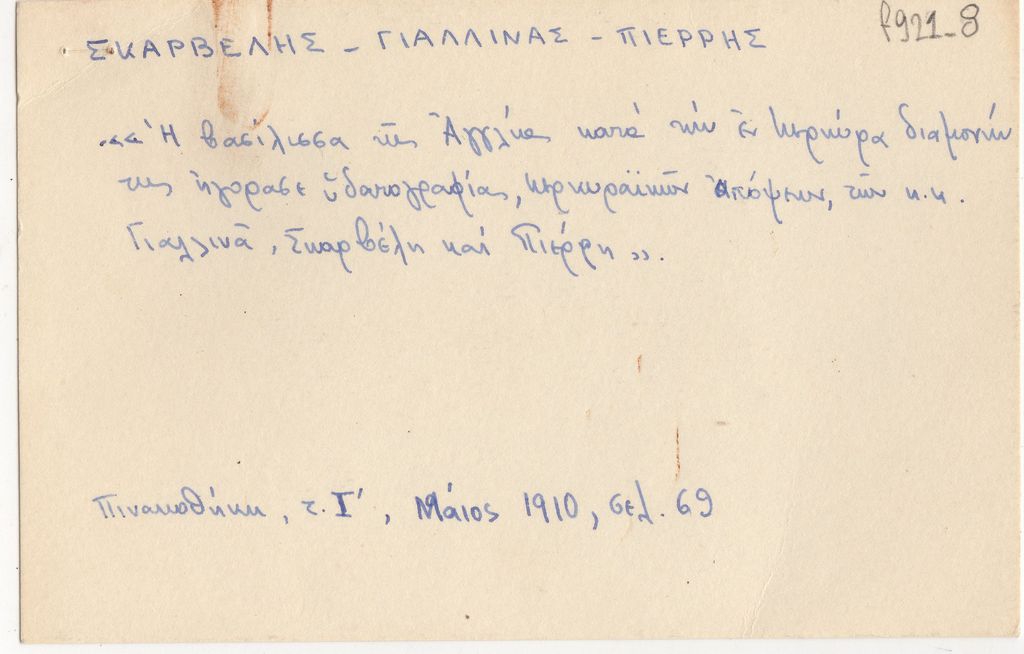 f921-8
ΣΚΑΡΒΕΛΗΣ - ΓΙΑΛΛΙΝΑΣ - ΠΙΕΡΡΗΣ
.«« Ἡ βασίλισσα τῆς Ἀγγλίας κατά τήν ἐν Κερκύρα διαμονήν
της ἠγόρασε ὑδατογραφίας, κερκυραϊκῶν ἀπόψεων, τῶν κ.κ.
Γιαλλινᾶ, Σκαρβέλη καί Πιέρρη ».
Πινακοθήκη, τ. Ι', Μάιος 1910, σελ. 69